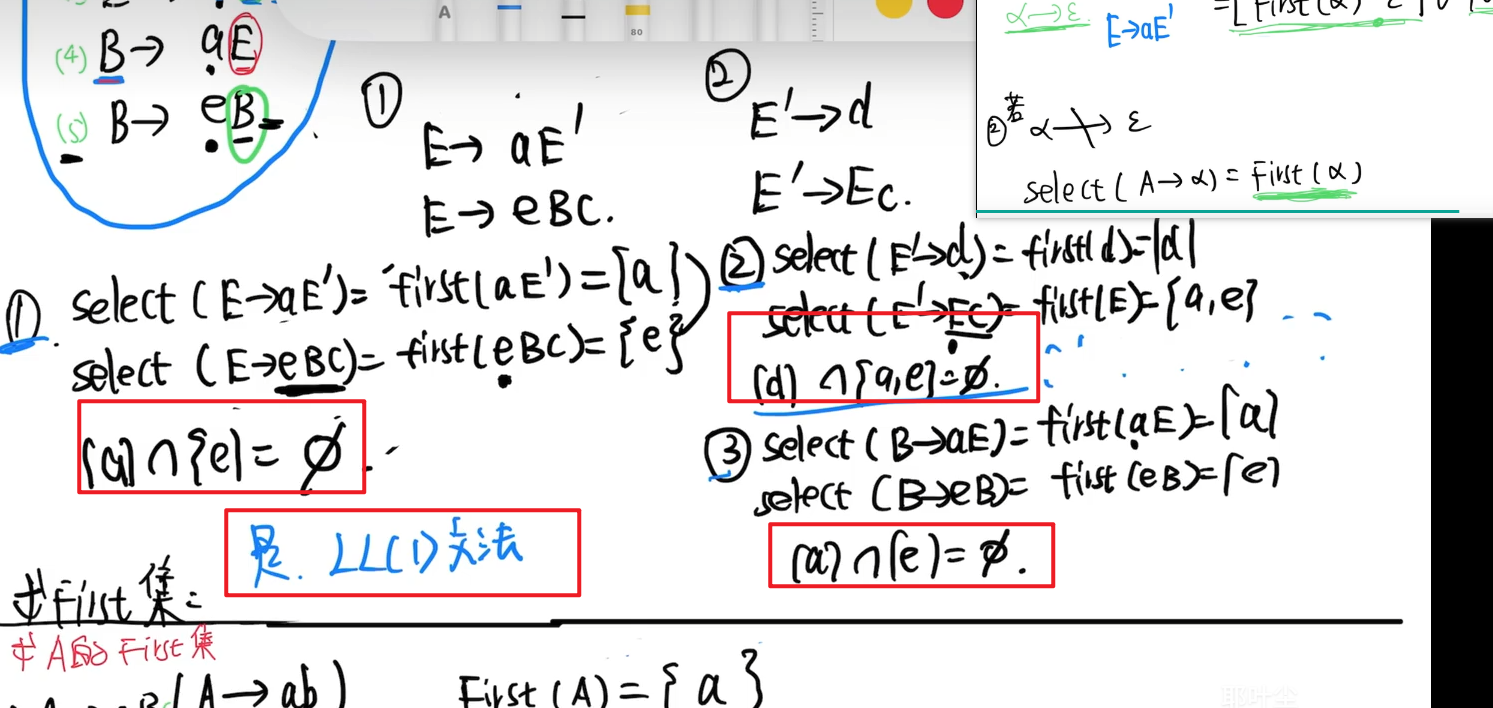 A
80
(4) B→ aE
(5) B→ eB
①
E→ aE'
E→ eBC.
②
E'→d
E'→Ec.
α→ε
E→aE'
②若 α↛ε
select(A→α)=First(α)
① select (E→aE')= first(aE')={a}
select (E→eBC)= first(eBC)={e}
{a}∩{e}= ∅.
② select(E'→d)=first(d)={d}
select(E'→EC)=first(E)={a,e}
{d}∩{a,e}=∅.
③ select(B→aE)=first(aE)={a}
select (B→eB)= first(eB)={e}
{a}∩{e}=∅.
是. LL(1)文法
求First集:
求A的First集
(A→ab)
First(A)={a}
耶叶尘